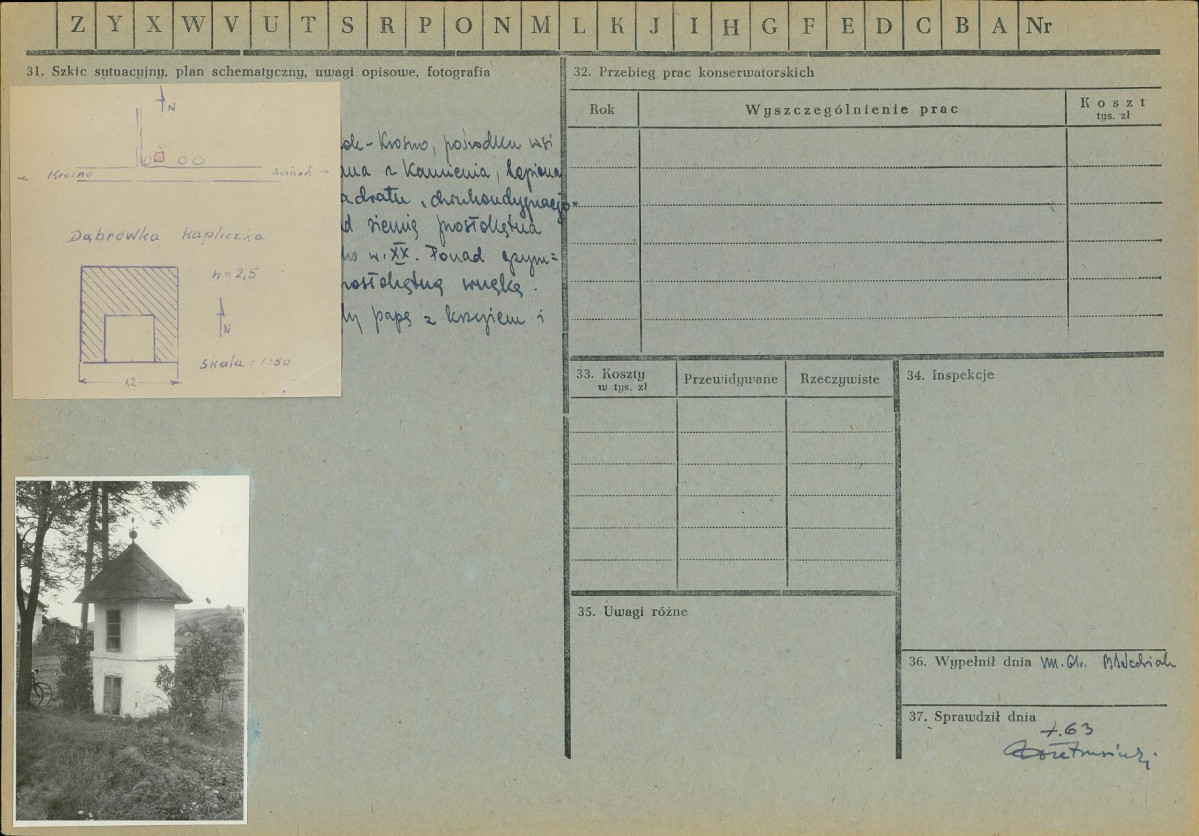 Z Y X W V U T S R P O N M L K J I H G F E D C B A Nr
31. Szkic sytuacyjny, plan schematyczny, uwagi opisowe, fotografia
N
Krosno
Sanok
Dąbrówka Kapliczka
h = 2,5
N
Skala = 1:50
1,2
ok - Krosno, pośrodku wsi
ana z Kamienia, łepiona
adratu, dwukondygnacjo=
d ziemią prostokątna
w. XX. Ponad gzym=
rostokątną wnęką.
papą z krzyżem i
32. Przebieg prac konserwatorskich
Rok
Wyszczególnienie prac
Koszt
tys. zł
33. Koszty
w tys. zł
Przewidywane
Rzeczywiste
34. Inspekcje
35. Uwagi różne
36. Wypełnił dnia
37. Sprawdził dnia
63